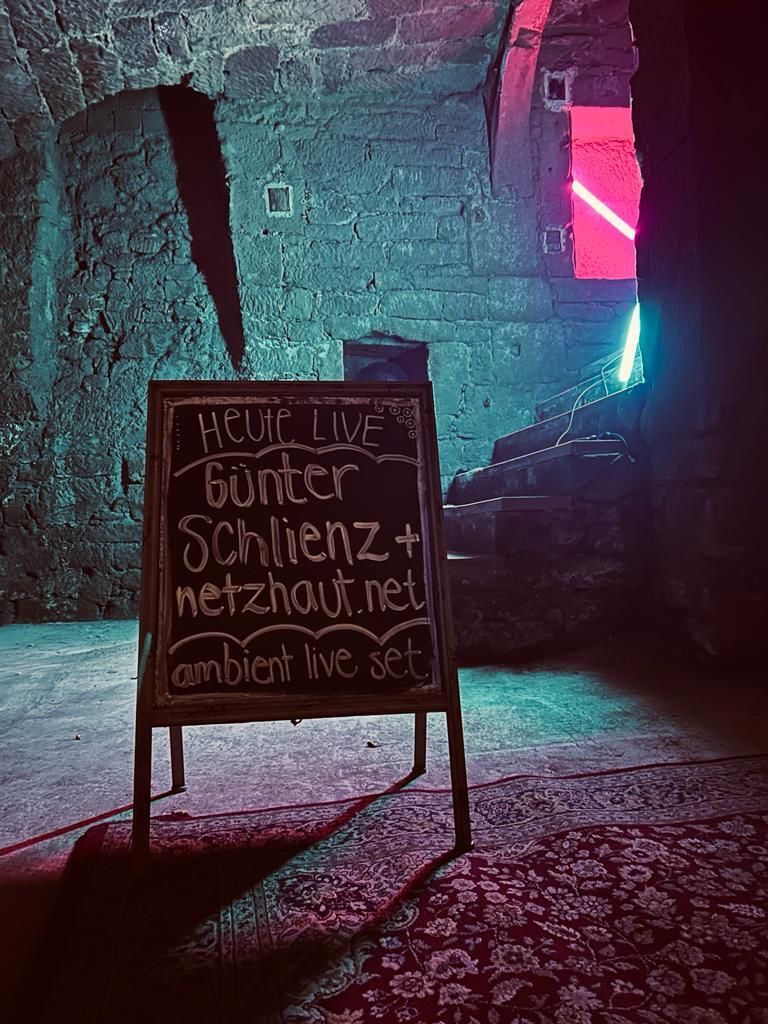 HEUTE LIVE
Günter
Schlienz +
netzhaut.net
ambient live set